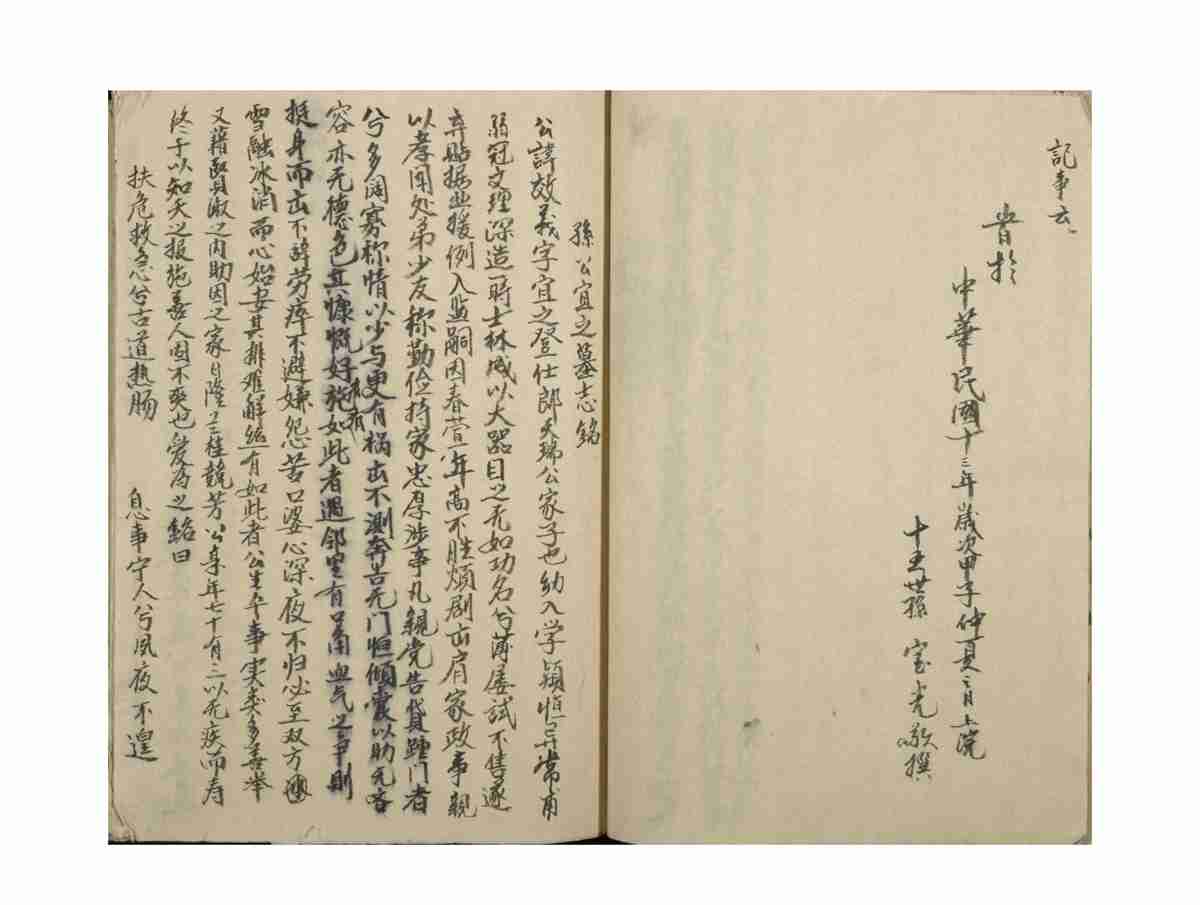 記事云
昔於
中華民國十三年歲次甲子仲夏之月上浣
十五世孫 寶光敬撰
孫公宜之墓志銘
公諱效義字宜之登仕郎天瑞公家子也幼入学颖悟异常甫
弱冠文理深造一時士林咸以大器目之无如功名兮薄屡試不售遂
弃贴括业援例入监嗣因春萱年高不胜烦剧出肩家政事親
以孝闻处弟少友称勤俭持家忠厚涉事凡親党告貸踵门者
兮多阔寡称情以少与更有祸出不测奔告无门恒倾囊以助无吝
容亦无德色其慷慨好施多有如此者遇邻里有口角血气之争則
挺身而出不辞劳瘁不避嫌怨苦口婆心深夜不归必至双方
雪融冰消而心始安其排难解纷有如此者公生平事实类多善举
又藉配贝淑之内助因之家日隆三桂競芳公享年七十有三以无疾而寿
终于以知天之报施善人固不爽也爰为之銘曰
扶危救急兮古道热肠 息事宁人兮夙夜不遑